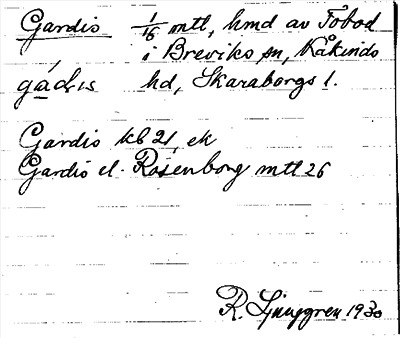 Gardis 1/16 mtl, hmd av Tobod
i Breviks sn, Kåkinds
gádis hd, Skaraborgs l.
Gardis kb 21, ek
Gardis el. Rosenborg mtl 26
R. Ljunggren 1930